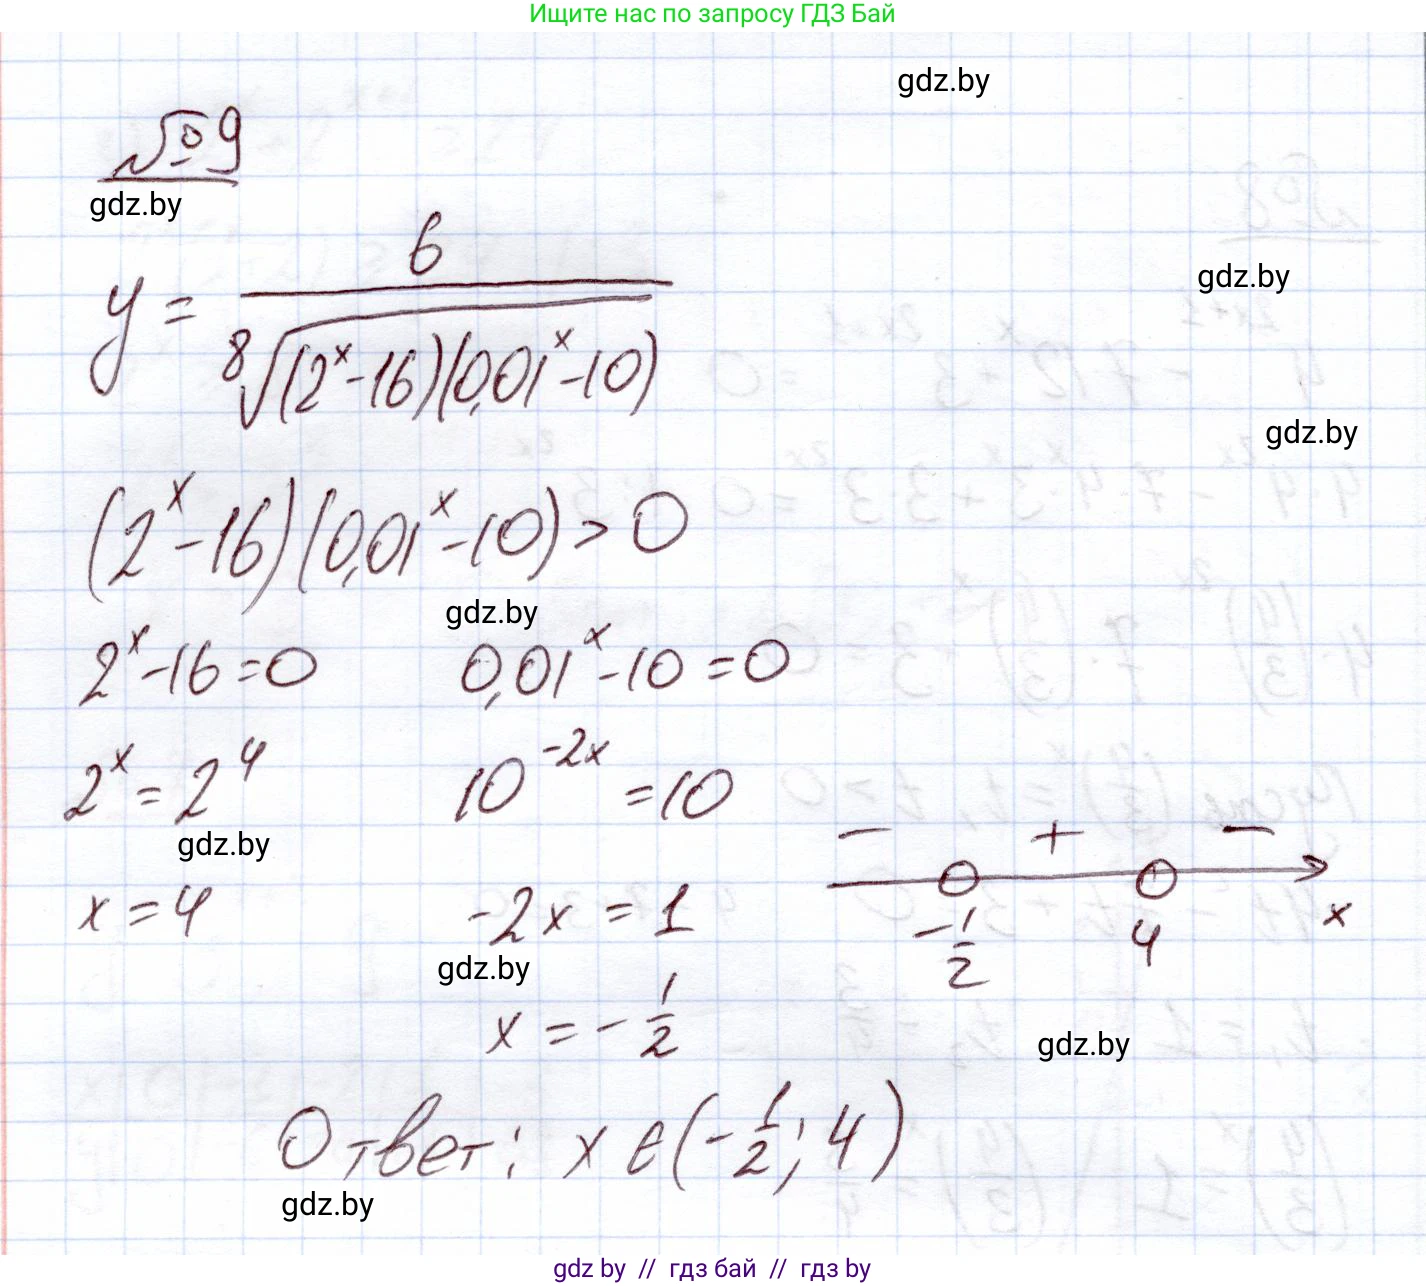 Ищите нас по запросу ГДЗ Бай
gdz.by
№9
gdz.by
gdz.by
y = 6 / ⁸√((2ˣ-16)(0,01ˣ-10))
gdz.by
(2ˣ-16)(0,01ˣ-10) > 0
gdz.by
2ˣ-16=0 0,01ˣ-10=0
2ˣ = 2⁴ 10⁻²ˣ = 10
gdz.by
− + −
x = 4 -2x = 1
-1/2 4 x
gdz.by
x = -1/2
gdz.by
Ответ: x ∈ (-1/2; 4)
gdz.by
gdz by // гдз бай // гдз by